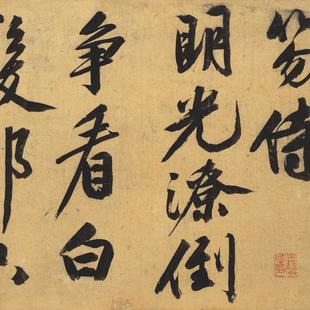 笏侍
明光潦倒
争看白
髮郎